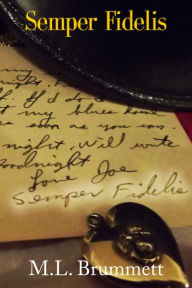 Semper Fidelis
night
If I'd
my blues home
as soon as you can.
night. Will write
goodnight
Love Joe
Semper Fidelis
M.L. Brummett